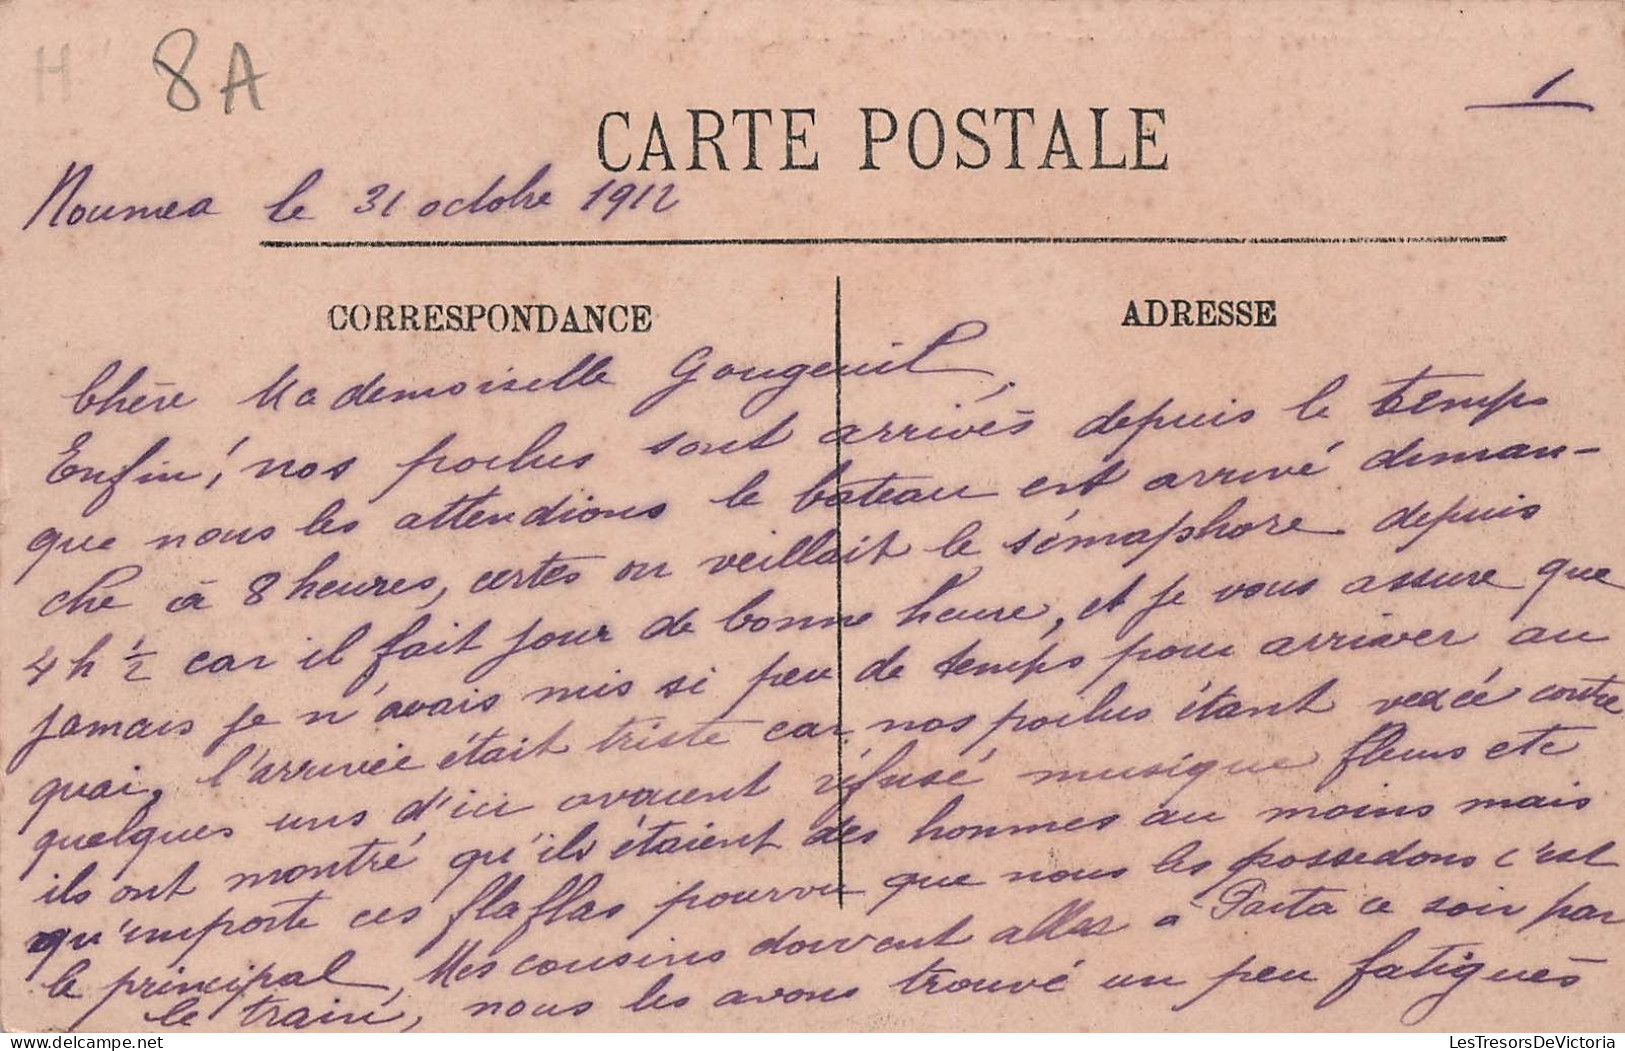 H 8A
1
CARTE POSTALE
Noumea le 31 octobre 1912
CORRESPONDANCE
ADRESSE
Chère Mademoiselle Gougenil,
Enfin! nos poilus sont arrivés depuis le temps
que nous les attendions le bateau est arrivé diman-
che à 8 heures, certes on veillait le sémaphore depuis
4 h ½ car il fait jour de bonne heure, et je vous assure que
jamais je n'avais mis si peu de temps pour arriver au
quai, l'arrivée était triste car nos poilus étant vexée contre
quelques uns d'ici avaient réfusé musique fleurs etc
ils ont montré qu'ils étaient des hommes au moins mais
qu'importe ces flaflas pourvu que nous les possedons c'est
le principal, Mes cousins doivent aller à Païta ce soir par
le train, nous les avons trouvé un peu fatigués
LesTresorsDeVictoria